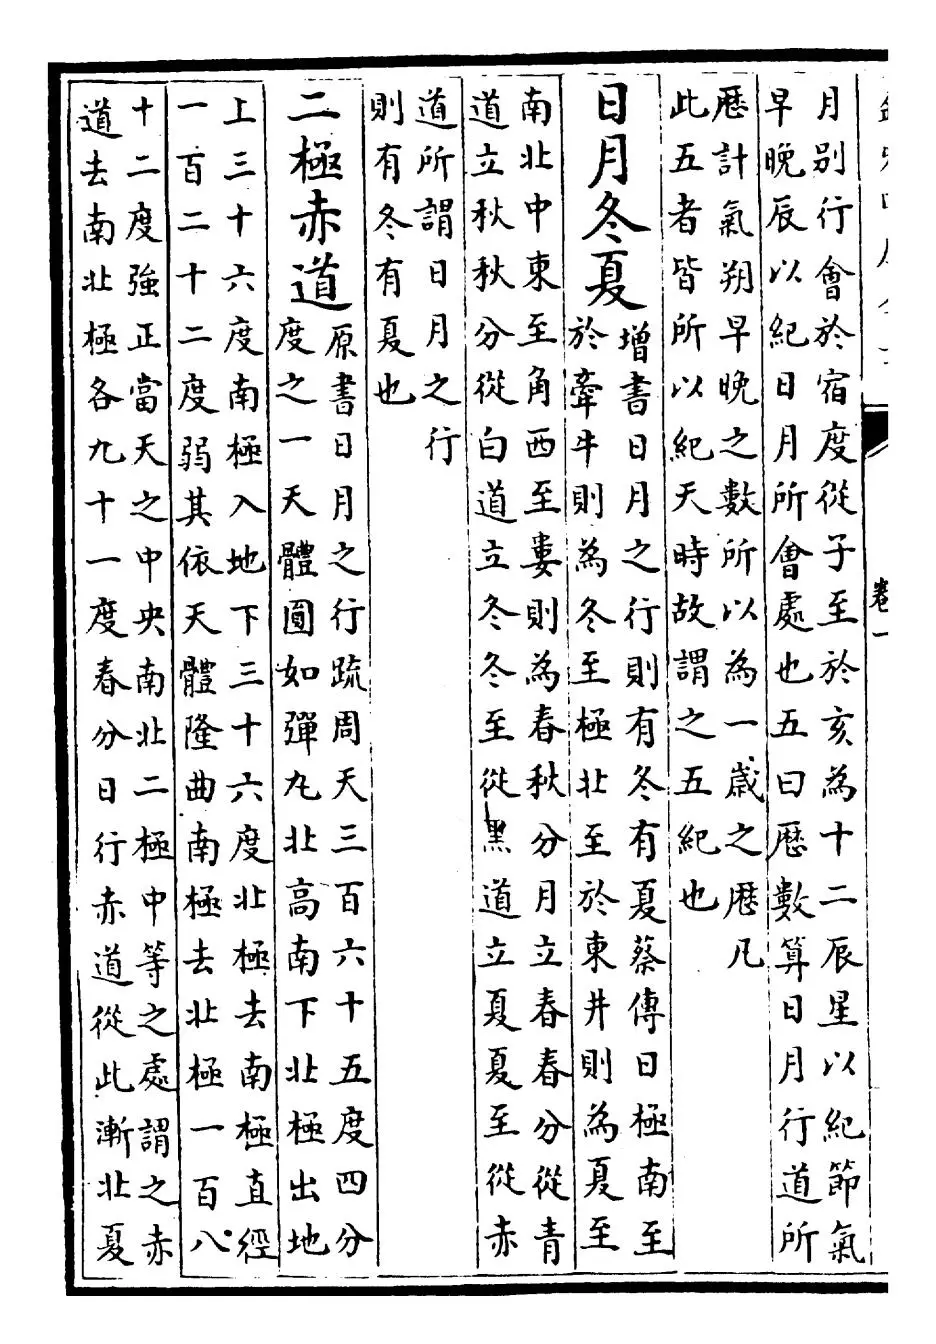 月別行會於宿度從子至於亥為十二辰星以紀節氣
早晚辰以紀日月所會處也五曰歴數算日月行道所
歴計氣朔早晚之數所以為一歳之歴凡
此五者皆所以紀天時故謂之五紀也
日月冬夏
增書日月之行則有冬有夏蔡傳日極南至
於牽牛則為冬至極北至於東井則為夏至
南北中東至角西至婁則為春秋分月立春春分從青
道立秋秋分從白道立冬冬至從黑道立夏夏至從赤
道所謂日月之行
則有冬有夏也
二極赤道
原書日月之行疏周天三百六十五度四分
度之一天體圓如彈丸北高南下北極出地
上三十六度南極入地下三十六度北極去南極直徑
一百二十二度弱其依天體隆曲南極去北極一百八
十二度強正當天之中央南北二極中等之處謂之赤
道去南北極各九十一度春分日行赤道從此漸北夏
卷一